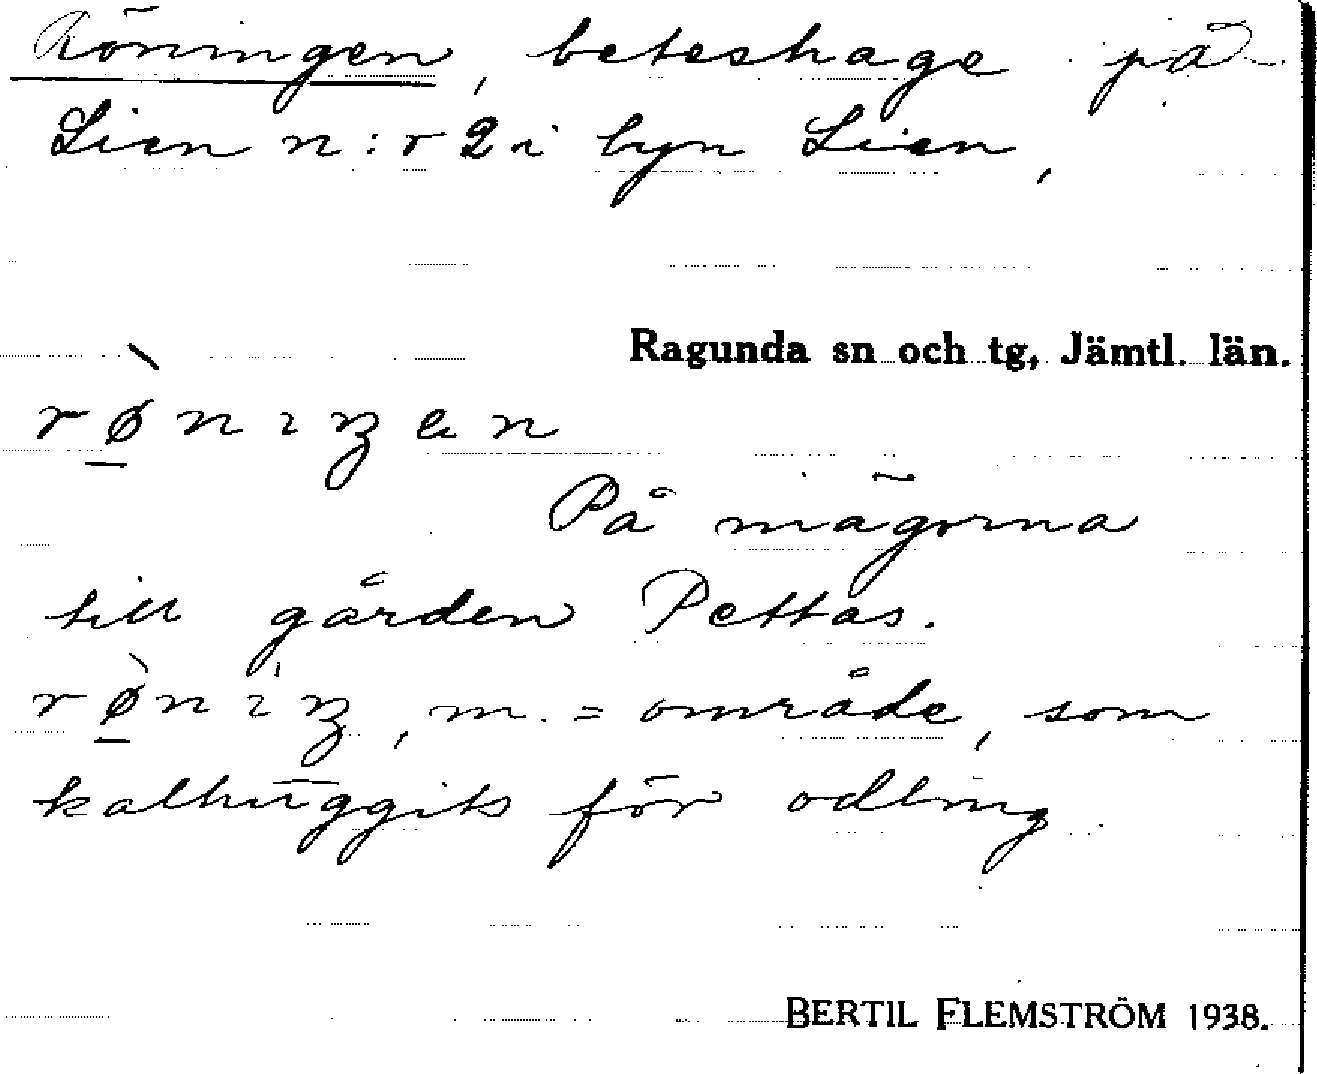 Röningen, beteshage på
Lien n:r 2 i byn Lien,
Ragunda sn och tg, Jämtl. län.
rø̱̀nıŋen
På mägorna
till gården Pettas.
rø̱̀nıŋ, m. = område, som
kalhuggits för odling.
BERTIL FLEMSTRÖM 1938.